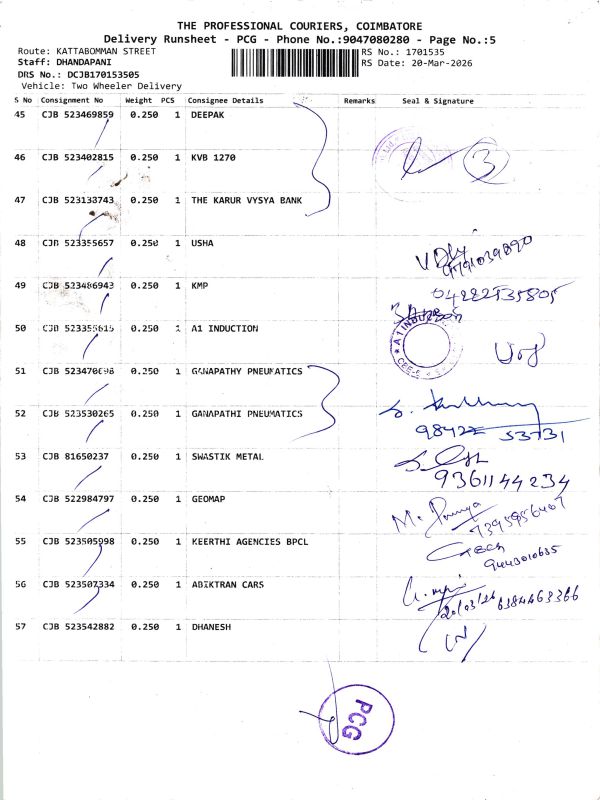 THE PROFESSIONAL COURIERS, COIMBATORE
Delivery Runsheet - PCG - Phone No.:9047080280 - Page No.:5
Route: KATTABOMMAN STREET
RS No.: 1701535
Staff: DHANDAPANI
RS Date: 20-Mar-2026
DRS No.: DCJB170153505
Vehicle: Two Wheeler Delivery
S No Consignment No Weight PCS Consignee Details Remarks Seal & Signature
45 CJB 523469859 0.250 1 DEEPAK
46 CJB 523402815 0.250 1 KVB 1270
3
47 CJB 523133743 0.250 1 THE KARUR VYSYA BANK
48 CJB 523355657 0.250 1 USHA
49 CJB 523486943 0.250 1 KMP
04222535805
50 CJB 0.250 1 A1 INDUCTION
A1 INDUC
51 CJB 0.250 1 GANAPATHY PNEUMATICS
52 CJB 523530265 0.250 1 GANAPATHI PNEUMATICS
98422 53731
53 CJB 81650237 0.250 1 SWASTIK METAL
9361144234
54 CJB 522984797 0.250 1 GEOMAP
7395956407
55 CJB 523505998 0.250 1 KEERTHI AGENCIES BPCL
9443010635
56 CJB 523507334 0.250 1 ABIKTRAN CARS
20/03/26 6384463366
57 CJB 523542882 0.250 1 DHANESH
PCG